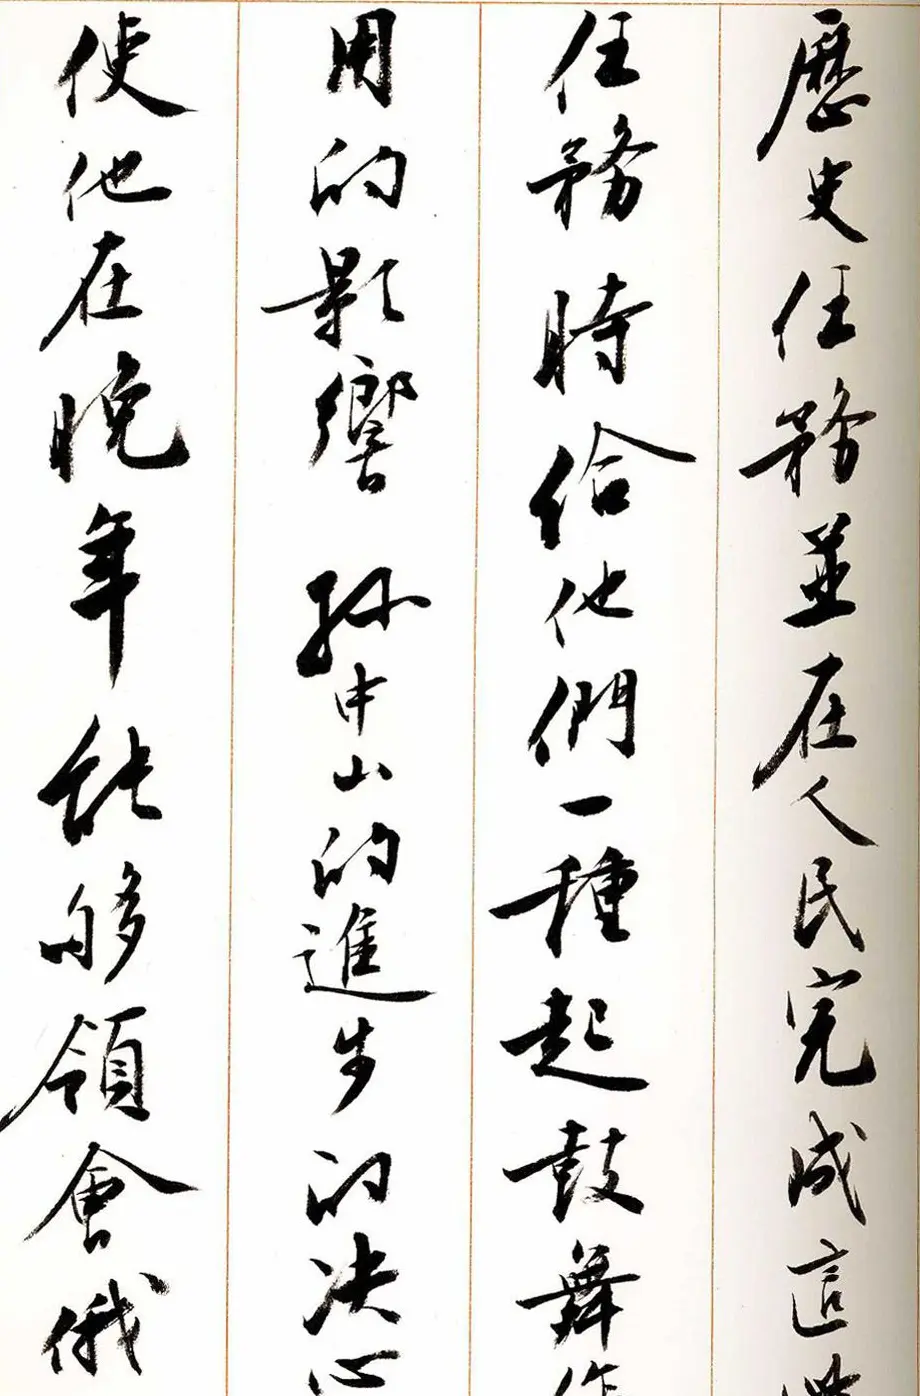 歷史任務並在人民完成這些
任務時給他們一種起鼓舞作
用的影響孫中山的進步的决心
使他在晚年能够領會俄